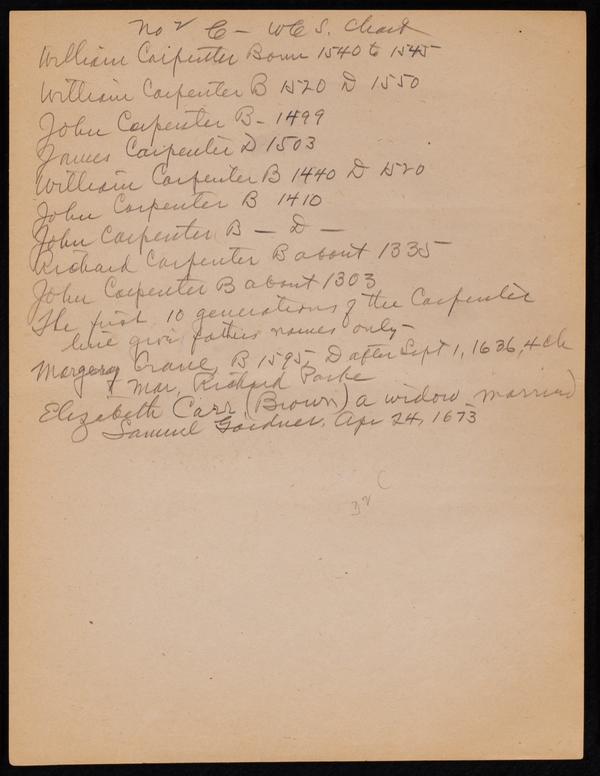 No 2 C - WCS. Chart
William Carpenter Born 1540 to 1545
William Carpenter B 1520 D 1550
John Carpenter B - 1499
James Carpenter D 1503
William Carpenter B 1440 D 1520
John Carpenter B 1410
John Carpenter B — D —
Richard Carpenter B about 1335
John Carpenter B about 1303
The first 10 generations of the Carpenter
line give fathers names only -
Margery Crane, B 1595, D after Sept 1, 1636, 4 ch
Mar, Richard Parke
Elizabeth Carr (Brown) a widow married
Samuel Gardner, Apr 24, 1673